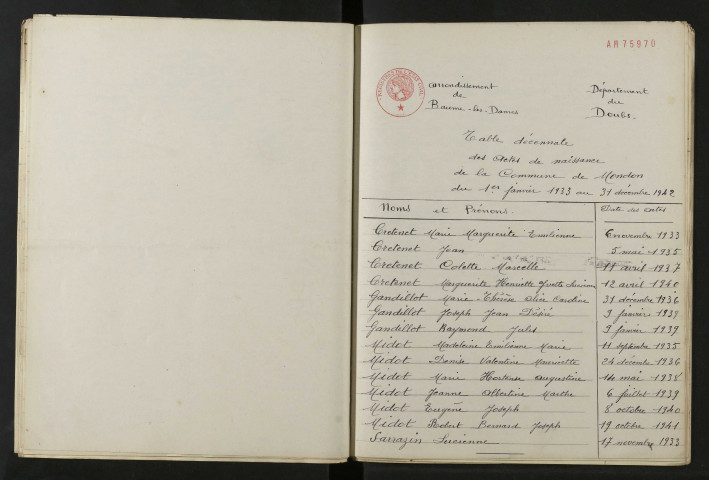 AM 75970
Arrondissement
de
Baume-les-Dames
Département
du
Doubs.
Table décennale
des Actes de naissance
de la Commune de Mondon
du 1er janvier 1933 au 31 décembre 1942
Noms et Prénoms. Date des actes
Cretenet Marie Marguerite Emilienne 6 novembre 1933
Cretenet Jean 5 mai 1935
Cretenet Colette Marcelle 11 avril 1937
Cretenet Marguerite Henriette Yvette 12 avril 1940
Gandillot Marie Thérèse Alice Caroline 31 décembre 1936
Gandillot Joseph Jean Désiré 9 janvier 1939
Gandillot Raymond Jules 9 janvier 1939
Midot Madeleine Emilienne Marie 11 septembre 1935
Midot Denise Valentine Mauricette 24 décembre 1936
Midot Marie Hortense Augustine 14 mai 1938
Midot Jeanne Albertine Marthe 6 juillet 1939
Midot Eugène Joseph 8 octobre 1940
Midot Robert Bernard Joseph 19 octobre 1941
Sarrazin Lucienne 17 novembre 1933